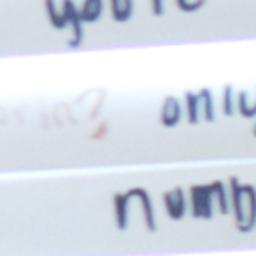 you're
only
numb